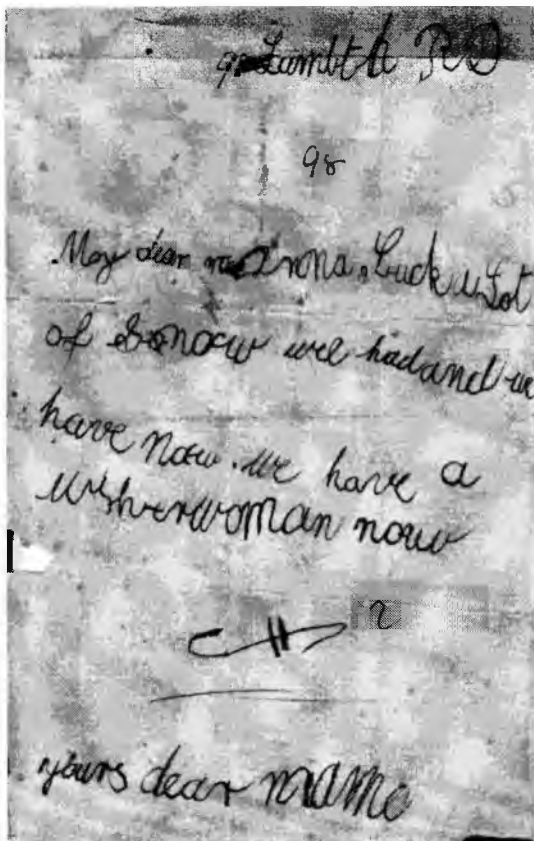 Lambth RD
98
My dear mamma, Luck a Lot
of Sonow wee had and we
have now. we have a
wisherwoman now
2
yours dear mama